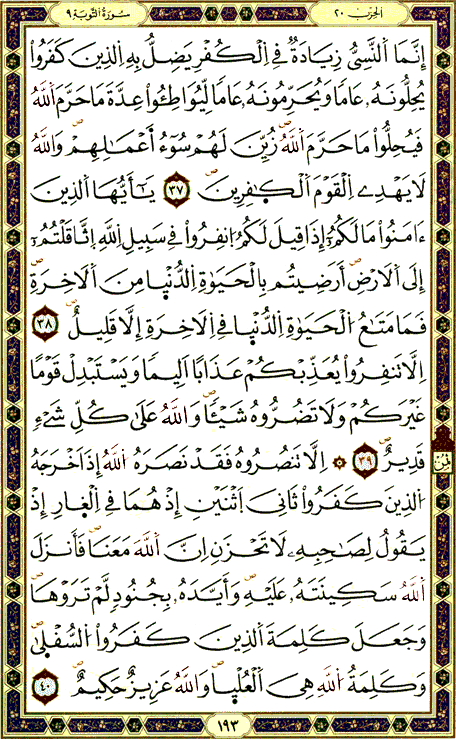 الحزب ٢٠ سورة التوبة ٩
إِنَّمَا اَ۬لنَّسِيُّ زِيَادَةٞ فِي اِ۬لْكُفْرِ يَضِلُّ بِهِ اِ۬لذِينَ كَفَرُواْ
يُحِلُّونَهُۥ عَاماٗ وَيُحَرِّمُونَهُۥ عَاماٗ لِّيُوَاطِـُٔواْ عِدَّةَ مَا حَرَّمَ اَ۬للَّهُ
فَيُحِلُّواْ مَا حَرَّمَ اَ۬للَّهُ زُيِّنَ لَهُمْ سُوٓءُ اَعْمَٰلِهِمْ وَاللَّهُ
لَا يَهْدِے اِ۬لْقَوْمَ اَ۬لْكٰ۪فِرِينَ ٣٧ يَٰٓأَيُّهَا اَ۬لذِينَ
ءَامَنُواْ مَا لَكُمُۥٓ إِذَا قِيلَ لَكُمُ اُ۪نفِرُواْ فِے سَبِيلِ اِ۬للَّهِ اِ۪ثَّاقَلْتُمُۥٓ
إِلَى اَ۬لَارْضِ أَرَضِيتُم بِالْحَيَوٰةِ اِ۬لدُّنْي۪ا مِنَ اَ۬لَاخِرَةِ
فَمَا مَتَٰعُ اُ۬لْحَيَوٰةِ اِ۬لدُّنْي۪ا فِے اِ۬لَاخِرَةِ إِلَّا قَلِيلٌ ٣٨
اِلَّا تَنفِرُواْ يُعَذِّبْكُمْ عَذَاباً اَلِيماٗ وَيَسْتَبْدِلْ قَوْماً
غَيْرَكُمْ وَلَا تَضُرُّوهُ شَيْـٔاٗ وَاللَّهُ عَلَىٰ كُلِّ شَےْءٖ
قَدِيرٌ ٣٩ ۞ اِلَّا تَنصُرُوهُ فَقَدْ نَصَرَهُ اُ۬للَّهُ إِذَ اَخْرَجَهُ
اُ۬لذِينَ كَفَرُواْ ثَانِيَ اَ۪ثْنَيْنِ إِذْ هُمَا فِے اِ۬لْغ۪ارِ إِذْ
يَقُولُ لِصَٰحِبِهِۦ لَا تَحْزَنِ اِنَّ اَ۬للَّهَ مَعَنَا فَأَنزَلَ
اَ۬للَّهُ سَكِينَتَهُۥ عَلَيْهِ وَأَيَّدَهُۥ بِجُنُودٖ لَّمْ تَرَوْهَا
وَجَعَلَ كَلِمَةَ اَ۬لذِينَ كَفَرُواْ اُ۬لسُّفْل۪يٰ
وَكَلِمَةُ اُ۬للَّهِ هِيَ اَ۬لْعُلْي۪ا وَاللَّهُ عَزِيزٌ حَكِيمٌ ٤٠
١٩٣